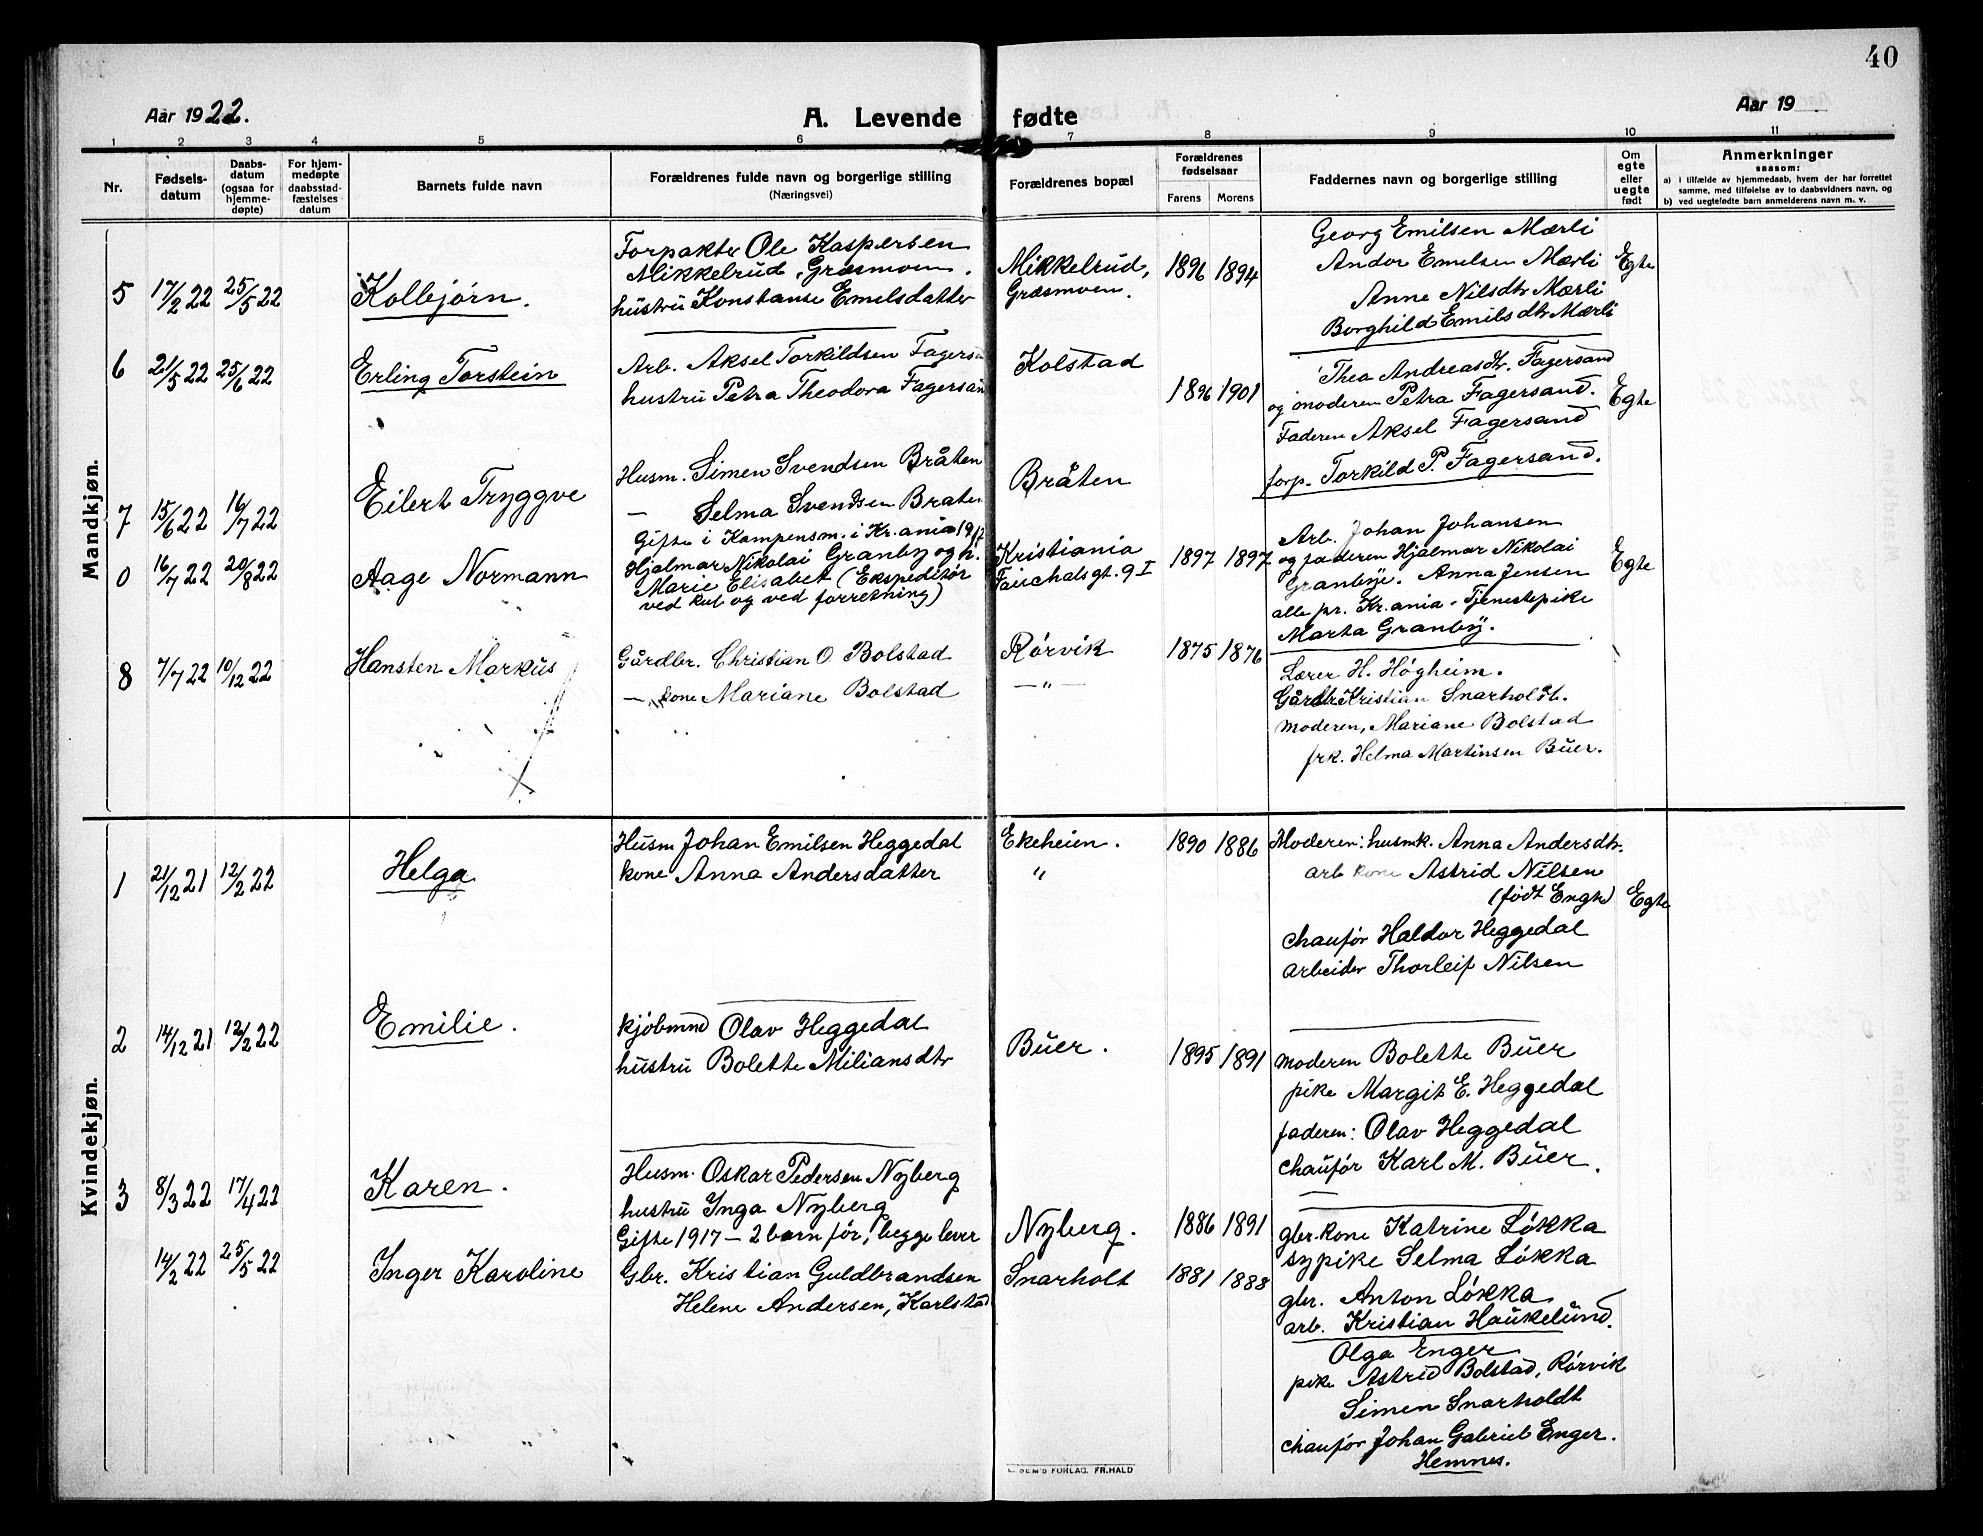 40
Aar 1922.
A. Levende fødte
Aar 19
1 2 3 4 5 6 7 8 9 10 11
Nr.
Fødsels-
datum
Daabs-
datum
(ogsaa for
hjemme-
døpte)
For hjem-
medøpte
daabsstad-
fæstelses
datum
Barnets fulde navn
Forældrenes fulde navn og borgerlige stilling
(Næringsvei)
Forældrenes bopæl
Forældrenes
fødselsaar
Farens Morens
Faddernes navn og borgerlige stilling
Om
egte
eller
uegte
født
Anmerkninger
saasom:
a) i tilfælde av hjemmedaab, hvem der har forrettet
samme, med tilføielse av to daabsvidners navn, og
b) ved uegtefødte barn anmelderens navn m. v.
Mandkjøn.
5 17/2 22 25/5 22 Kolbjørn.
Forpakter Ole Kaspersen
Mikkelrud, Græsmoen.
hustru Konstanse Emelsdatter
Mikkelrud,
Græsmoen.
1896 1894
Georg Emilsen Mærli
Andor Emelsen Mærli
Anne Nilsdtr Mærli
Borghild Emilsdtr Mærli
Egte
6 21/5 22 25/6 22 Erling Torstein
Arb. Aksel Torkildsen Fagersa
hustru Petra Theodora Fagersan
Kolstad
1896 1901
Thea Andreasdtr. Fagersand
og moderen Petra Fagersand.
Faderen Aksel Fagersand
forp. Torkild P. Fagersand.
Egte
7 15/6 22 16/7 22 Eilert Tryggve
Husm. Simen Svendsen Bråten
— Selma Svendsen Braten
Bråten
0 16/7 22 20/8 22 Aage Normann
Gifte i Kampensm. i Kr.ania
Hjalmar Nikolai Granby og h.
Marie Elisabet (Ekspeditør
ved kul og ved forretning)
Kristiania
Fauchalsgt. 9 I
1897 1897
Arb. Johan Johansen
og faderen Hjalmar Nikolai
Granbye. Anna Jensen
alle pr. Kr.ania. Tjenestepike
Marta Granby.
Egte
8 7/7 22 10/12 22 Hansten Markus
Gårdbr. Christian O Bolstad
— kone Mariane Bolstad
Rørvik
— " —
1875 1876
Lærer H. Høgheim.
Gårdbr Kristian Snarholdt.
moderen, Mariane Bolstad
frk. Helma Martinsen Buer.
Kvindekjøn.
1 21/12 21 12/2 22 Helga
Husm Johan Emilsen Heggedal
kone Anna Andersdatter
Ekeheien.
"
1890 1886
Moderen: husmk. Anna Andersdtr.
arb kone Astrid Nilsen
(født Engh)
chaufør Haldor Heggedal
arbeider Thorleif Nilsen
Egte
2 14/12 21 12/2 22 Emilie.
kjøbmnd Olav Heggedal
hustru Bolette Miliansdtr
Buer.
1895 1891
moderen Bolette Buer
pike Margit E. Heggedal
faderen: Olav Heggedal
chaufør Karl M. Buer.
3 8/3 22 17/4 22 Karen.
Husm. Oskar Pedersen Nyberg
hustru Inga Nyberg
Gifte 1917 – 2 barn før, begge lever
Nyberg.
1886 1891
gbr.kone Katrine Løkka
sypike Selma Løkka
gbr. Anton Løkka
arb. Kristian Haukelund.
14/2 22 25/5 22 Inger Karoline
Gbr. Kristian Guldbrandsen
Helene Andersen, Karlstad
Snarholt
1881 1888
Olga Enger
pike Astrid Bolstad, Rørvik
Simen Snarholdt
chaufør Johan Gabriel Enger.
Hemnes.
E. SEM'S FORLAG. FR.HALD